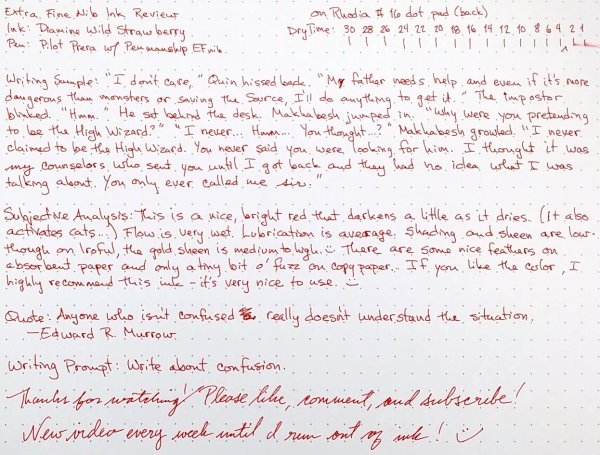 Extra Fine Nib Ink Review
on Rhodia #16 dot pad (back)
Ink: Diamine Wild Strawberry
Dry Time: 30 28 26 24 22 20 18 16 14 12 10 8 6 4 2 1
Pen: Pilot Prera w/ Penmanship EF nib.
Writing Sample: "I don't care," Quin hissed back. "My father needs help, and even if it's more
dangerous than monsters or saving the Source, I'll do anything to get it." The impostor
blinked. "Hmm." He sat behind the desk. Makhabesh jumped in. "Why were you pretending
to be the High Wizard?" "I never... Hmm... You thought...?" Makhabesh growled. "I never
claimed to be the High Wizard. You never said you were looking for him. I thought it was
my counselors who sent you until I got back and they had no idea what I was
talking about. You only ever called me sir."
Subjective Analysis: This is a nice, bright red that darkens a little as it dries. (It also
activates cats...) Flow is very wet. Lubrication is average. Shading and sheen are low-
though on Iroful, the gold sheen is medium to high. :) There are some nice feathers on
absorbent paper and only a tiny bit o' fuzz on copy paper... If you like the color, I
highly recommend this ink - it's very nice to use. :)
Quote: Anyone who isn't confused really doesn't understand the situation.
—Edward R. Murrow
Writing Prompt: Write about confusion.
Thanks for watching! Please like, comment, and subscribe!
New video every week until I run out of ink! :)